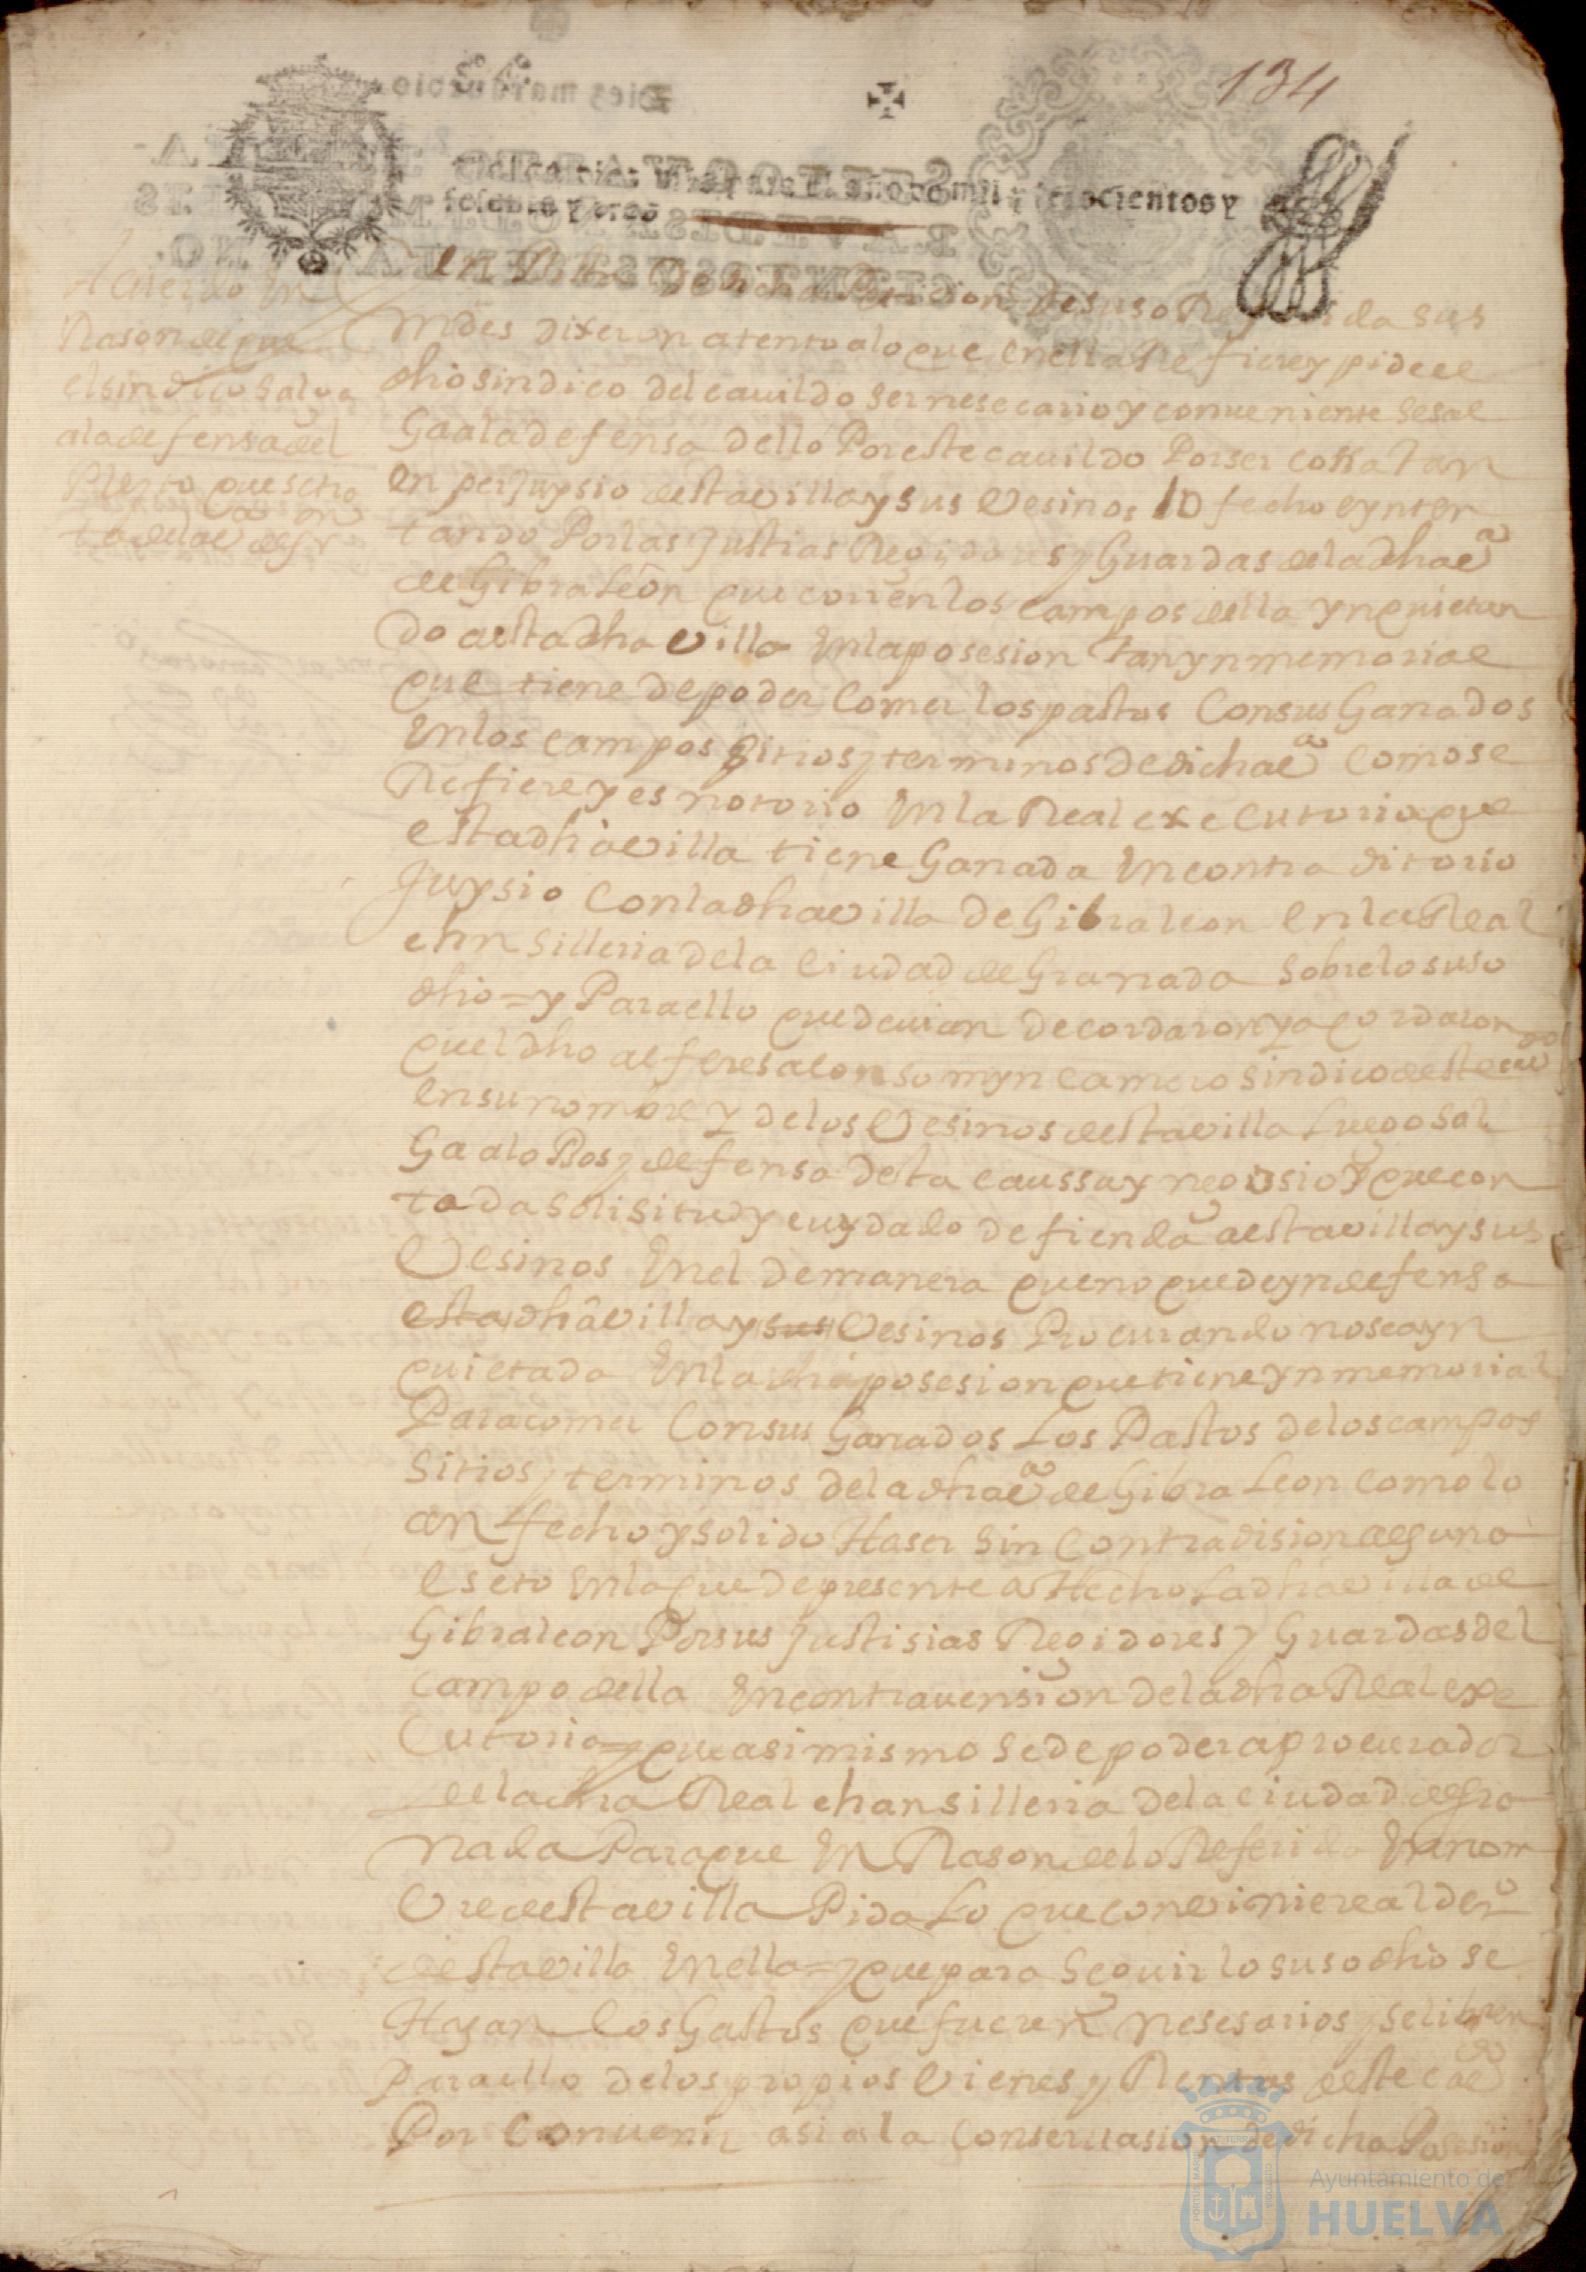 134
para el año de mil y seiscientos y
sesenta y tres
Acuerdo En
Rason de que
el sindico salga
a la defensa del
Pleyto que se tra
ta de la va de gi
En Vista De dicha Peticion de suso Referida sus
mdes dixeron atento a lo que en ella Refiere y pide el
dho sindico del cauildo ser nesecario y conueniente se sal
Ga a la defensa dello Por este cauildo Por ser cossa tan
En perjuysio desta villa y sus Vesinos lo fecho e ynten
tando Por las Justias Regidores y Guardas de la dha va
de Gibraleon que corren los campos della ynquietan
do a esta dha villa En la posesion tan ynmemoriae
que tiene de poder Comer los pastos Con sus Ganados
En los campos sitios y terminos de dicha va Como se
Refiere y es notorio En la Real executoria que
esta dha villa tiene Ganada En contraditorio
Juysio Con la dha villa de Gibraleon En la Real
chansilleria de la Ciudad de Granada sobre lo suso
dho = y Para ello que deuian de cordaron y acordaron
quel dho alferes alonso myn camero sindico deste cavdo
En su nombre y de los Vesinos desta villa Luego sal
Ga a lo Bos y defensa desta caussa y negosio y que con
toda solisitud y cuydado defienda a esta villa y sus
Vesinos En el de manera que no quede yndefensa
esta dha villa y sus Vesinos Procurando no sea yn
quietada En la dha posesion que tiene ynmemorial
Para comer Con sus Ganados Los Pastos de los campos
Sitios y terminos de la dha va de Gibraleon Como lo
an fecho y solido Haser Sin Contradision alguna
eseto En la que de presente a Hecho La dha villa de
Gibraleon Por sus Justisias Regidores y Guardas del
Campo della En contrauension de la dha Real exe
Cutoria = y que asimismo se de poder a procurador
de la dha Real chansilleria de la ciudad de Gra
nada Para que En Rason de lo Referido En nom
Vre de esta villa Pida Lo que conviniere al dero
desta villa En ella = y que para Seguir lo susodho se
Hagan los Gastos que fueren nesesarios y se libren
Para ello de los propios Vienes y Rentas deste cavdo
Por Conuenir asi a la Conseruasion de dicha Posesion
Ayuntamiento de
HUELVA